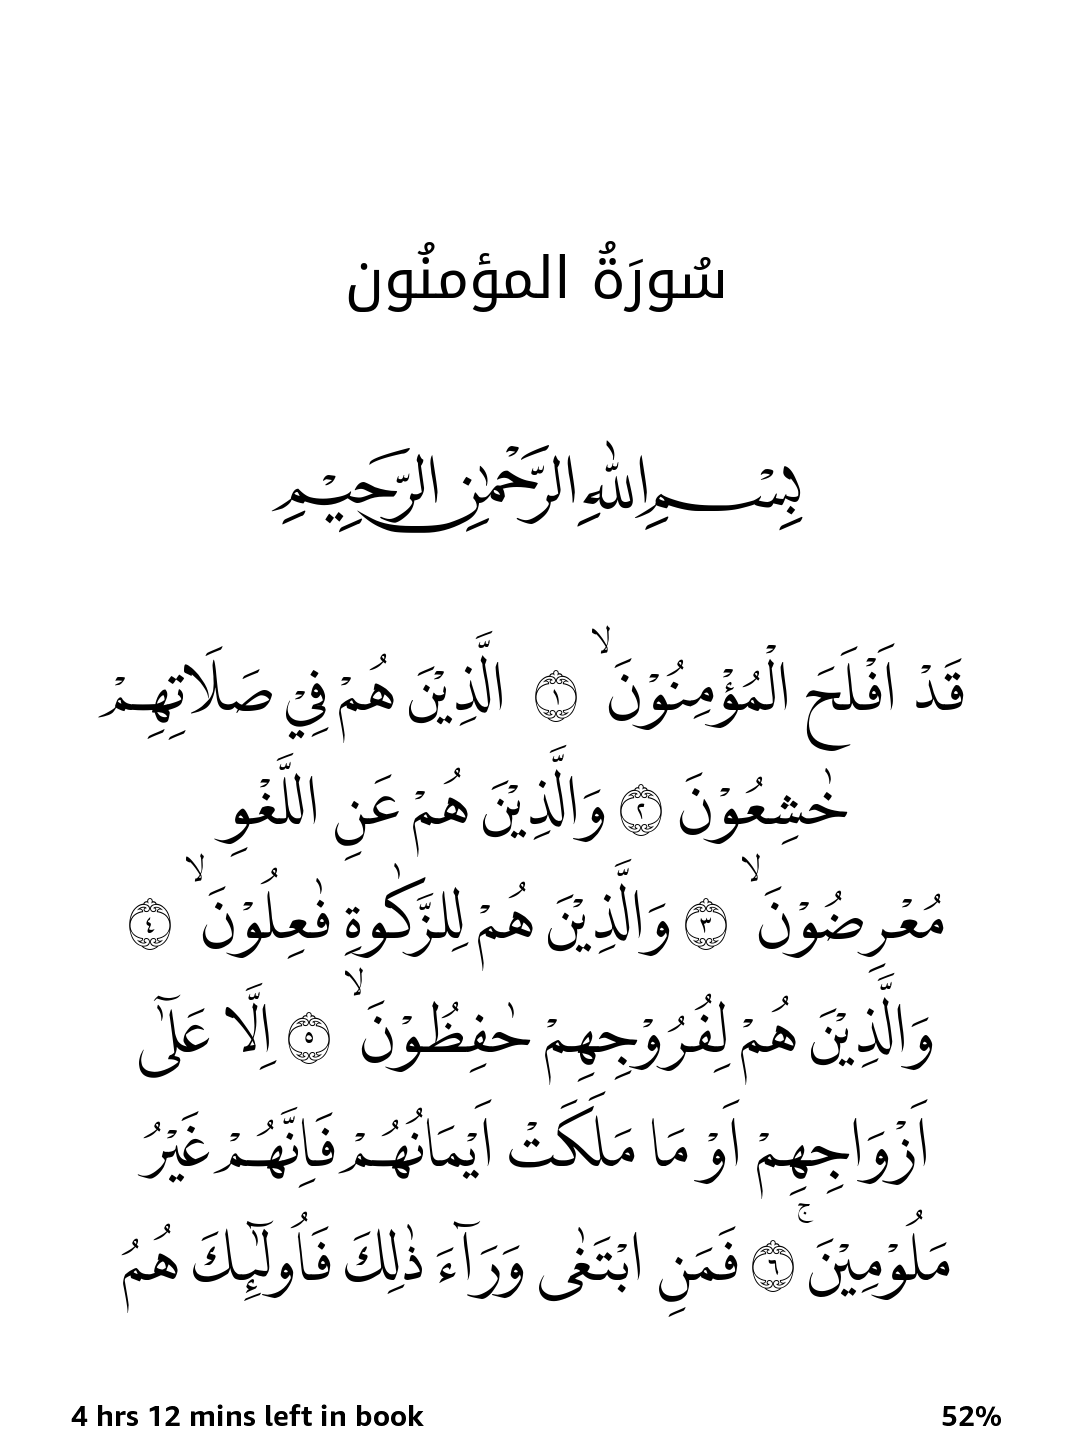 سُورَةُ المؤمنُون
بِسْمِ اللّٰهِ الرَّحْمٰنِ الرَّحِيْمِ
قَدْ اَفْلَحَ الْمُؤْمِنُوْنَ ۙ ۝١ الَّذِيْنَ هُمْ فِيْ صَلَاتِهِمْ
خٰشِعُوْنَ ۝٢ وَالَّذِيْنَ هُمْ عَنِ اللَّغْوِ
مُعْرِضُوْنَ ۙ ۝٣ وَالَّذِيْنَ هُمْ لِلزَّكٰوةِ فٰعِلُوْنَ ۙ ۝٤
وَالَّذِيْنَ هُمْ لِفُرُوْجِهِمْ حٰفِظُوْنَ ۙ ۝٥ اِلَّا عَلٰٓى
اَزْوَاجِهِمْ اَوْ مَا مَلَكَتْ اَيْمَانُهُمْ فَاِنَّهُمْ غَيْرُ
مَلُوْمِيْنَ ۚ ۝٦ فَمَنِ ابْتَغٰى وَرَآءَ ذٰلِكَ فَاُولٰٓئِكَ هُمُ
4 hrs 12 mins left in book 52%